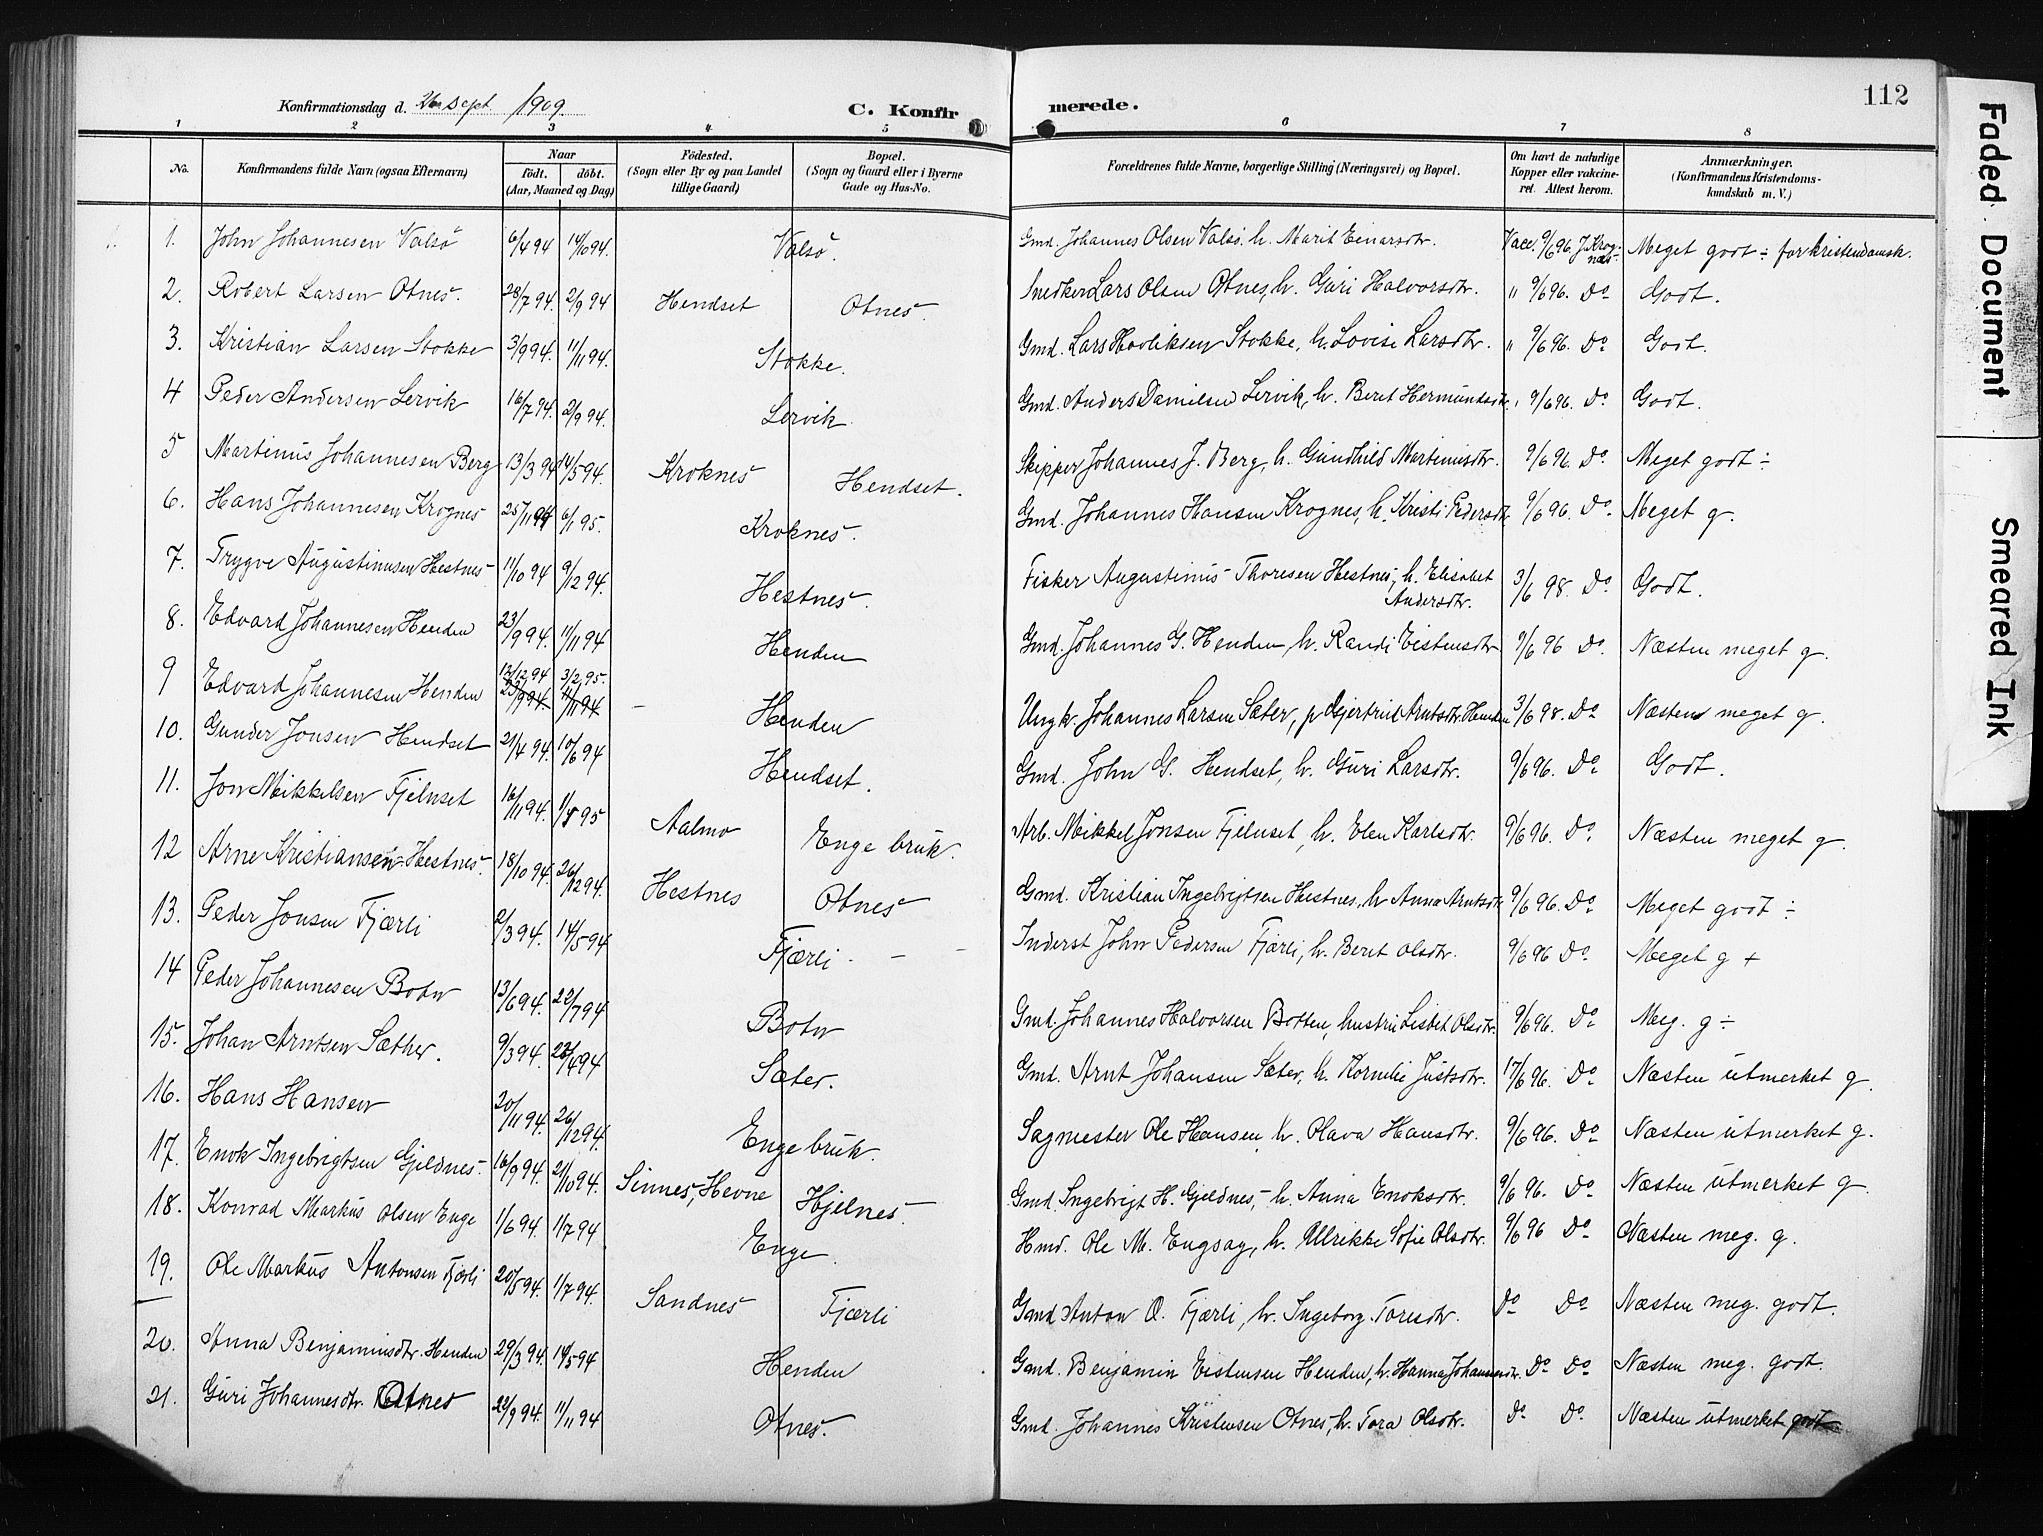 112
Konfirmationsdag d. 26 sept. 1909.
C. Konfirmerede.
1 2 3 4 5 6 7 8
No. Konfirmandens fulde Navn (ogsaa Efternavn) Naar født. døbt. (Aar, Maaned og Dag) Fødested. (Sogn eller By og paa Landet tillige Gaard) Bopæl. (Sogn og Gaard eller i Byerne Gade og Hus-No. Forældrenes fulde Navne, borgerlige Stilling (Næringsvei) og Bopæl. Om havt de naturlige Kopper eller vakcineret. Attest herom. Anmærkninger. (Konfirmandens Kristendomskundskab m. V.)
1. John Johannesen Valsö 6/4 94 14/10 94. Valsö. Gmd. Johannes Olsen Valsö. h. Marit Einarsdtr. Vacc. 9/6 96. J. Krognæs Meget godt ÷ for kristendomsk.
2. Robert Larsen Otnes. 28/7 94. 2/9 94 Hendset Otnes. Snedker Lars Olsen Otnes, h. Guri Halvorsdtr. " 9/6 96. Do Godt.
3. Kristian Larsen Stokke 3/9 94. 11/11 94. Stokke. Gmd. Lars Hovliksen Stokke, h. Lovise Larsdtr. " 9/6 96. Do Godt.
4 Peder Andersen Lervik 16/7 94. 2/9 94. Lervik Gmd. Anders Danielsen Lervik, h. Beret Hermundsdtr. " 9/6 96. Do Godt.
5 Martinus Johannesen Berg 13/3 94 14/5 94. Kroknes Hendset. Skipper Johannes J. Berg, h. Gundhild Martinusdtr. 9/6 96. Do. Meget godt ÷
6. Hans Johannesen Krognes 25/11 94 6/1 95. Kroknes. Gmd. Johannes Hansen Krognes, h. Kristi Pedersdtr 9/6 96. Do. Meget g.
7. Trygve Augustinusen Hestnes 11/10 94 9/12 94. Hestnes. Fisker Augustinus Thoresen Hestnes, h. Elisabet Andersdtr. 3/6 98. Do Godt.
8. Edvard Johannesen Henden 23/9 94. 11/11 94 Henden Gmd. Johannes G. Henden, h. Randi Eistensdtr 9/6 96 Do. Næsten meget g.
9 Edvard Johannesen Henden 12/12 94 3/2 95. 23/9 94. 11/11 94 Henden Ungk. Johannes Larsen Sæter, p Gjertrud Arntsdtr. Henden 3/6 98. Do Næsten meget g.
10. Gunder Jonsen Hendset 21/4 94. 10/6 94 Hendset. Gmd. John G. Hendset, h. Guri Larsdtr. 9/6 96. Do Godt.
11. Jon Mikkelsen Fjelnset 16/11 94. 1/1 95 Aalmo Enge bruk. Arb. Mikkel Jonsen Fjelnset, h. Elen Karlsdtr. 9/6 96. Do Næsten meget g.
12 Arne Kristiansen Hestnes. 18/10 94. 26/12 94. Hestnes Otnes Gmd. Kristian Ingebrigtsen Hestnes, h Anna Arntsdtr 9/6 96. Do Meget godt ÷
13. Peder Jonsen Fjærli 2/3 94. 14/5 94 Fjærli Inderst John Pedersen Fjærli, h. Beret Olsdtr. 9/6 96 Do. Meget g +
14 Peder Johannesen Botn 13/6 94. 22/7 94 Botn Gmd. Johannes Halvorsen Botten, hustru Lisbet Olsdtr. 9/6 96. Do Meg. g ÷
15. Johan Arntsen Sæther. 9/3 94. 23/4 94 Sæter. Gmd. Arnt Johansen Sæter, h. Kornelie Justsdtr. 17/6 96. Do Næsten utmerket g.
16. Hans Hansen 20/11 94. 26/12 94. Enge bruk. Sagmester Ole Hansen h. Olava Hansdtr. 9/6 96. Do Næsten utmerket g.
17. Enok Ingebrigtsen Gjeldnes. 16/9 94. 21/10 94. Sinnes, Hevne Hjelnes. Gmd. Ingebrigt H. Gjeldnes, h. Anna Enoksdtr. 9/6 96. Do Næsten utmerket g.
18. Konrad Markus Olsen Enge 1/6 94. 1/7 94 Enge. Hmd. Ole M. Engsag, h. Ullrikke Sofie Olsdtr. 9/6 96 Do Næsten meg. g.
19. Ole Markus Antonsen Fjærli 20/5 94. 1/7 94. Sandnes Fjærli Gmd Anton O. Fjærli, h. Ingeborg Toresdtr. Do Do Næsten meg. godt.
20. Anna Benjaminsdtr. Henden 29/3 94. 14/5 94 Henden Gmd. Benjamin Eistensen Henden, h. Hanna Johannesdtr. Do Do Næsten meg. godt.
21. Guri Johannesdtr. Otnes 22/9 94. 11/11 94 Otnes. Gmd. Johannes Kristensen Otnes, h. Tora Olsdtr. Do Do. Næsten utmerket godt
Faded Document
Smeared Ink